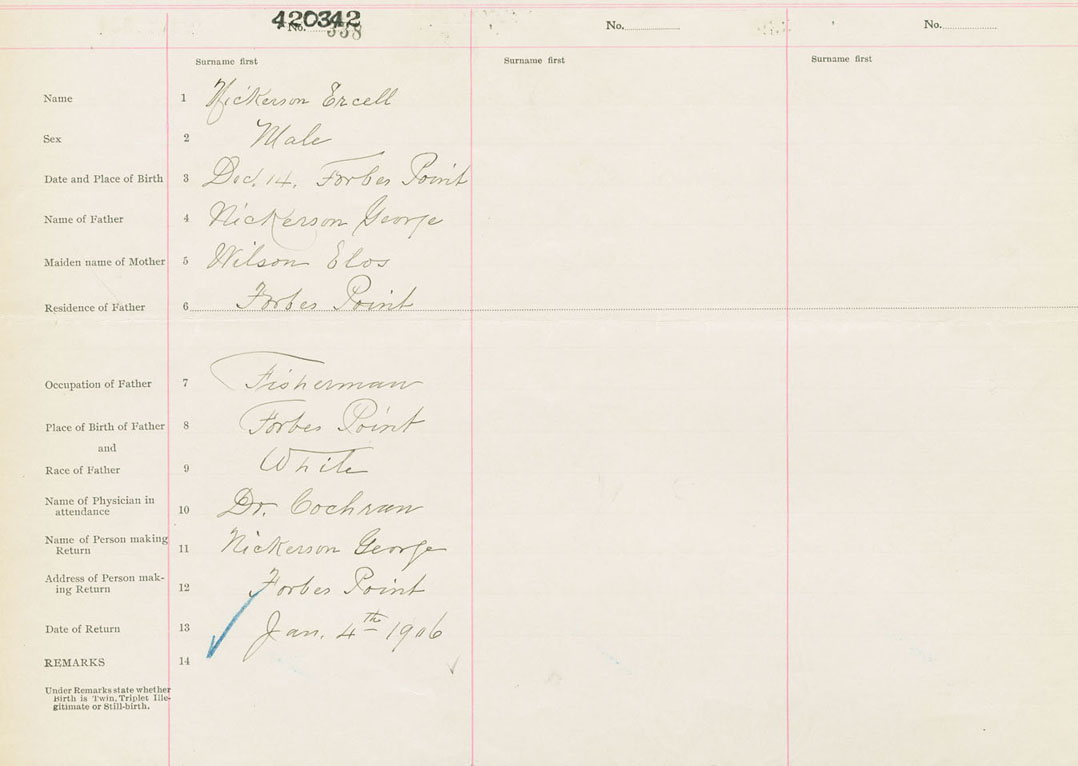 420342
No. 338 No. No.
Surname first Surname first Surname first
Name 1 Nickerson Ercell
Sex 2 Male
Date and Place of Birth 3 Dec. 14, Forbes Point
Name of Father 4 Nickerson George
Maiden name of Mother 5 Wilson Elos
Residence of Father 6 Forbes Point
Occupation of Father 7 Fisherman
Place of Birth of Father 8 Forbes Point
and
Race of Father 9 White
Name of Physician in
attendance 10 Dr. Cochran
Name of Person making
Return 11 Nickerson George
Address of Person mak-
ing Return 12 Forbes Point
Date of Return 13 Jan. 4th 1906
REMARKS 14
Under Remarks state whether
Birth is Twin, Triplet Ille-
gitimate or Still-birth.